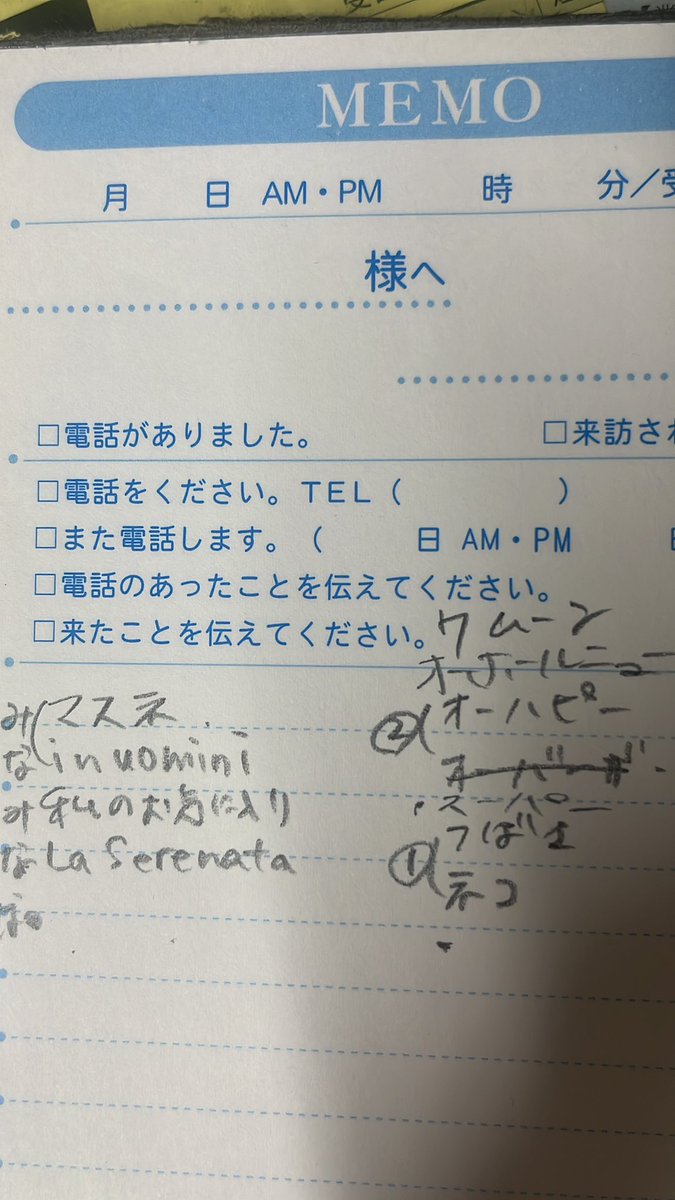 MEMO
月 日 AM・PM 時 分/受
様へ
□電話がありました。 □来訪され
□電話をください。TEL( )
□また電話します。( 日 AM・PM 日
□電話のあったことを伝えてください。
□来たことを伝えてください。
ワムーン
オーホールニュー
み(マスネ
②(オーハピー
な in uomini
オーバーザ
み 私のお気に入り
・スーパー
な La Serenata
①(つばさ
ネコ